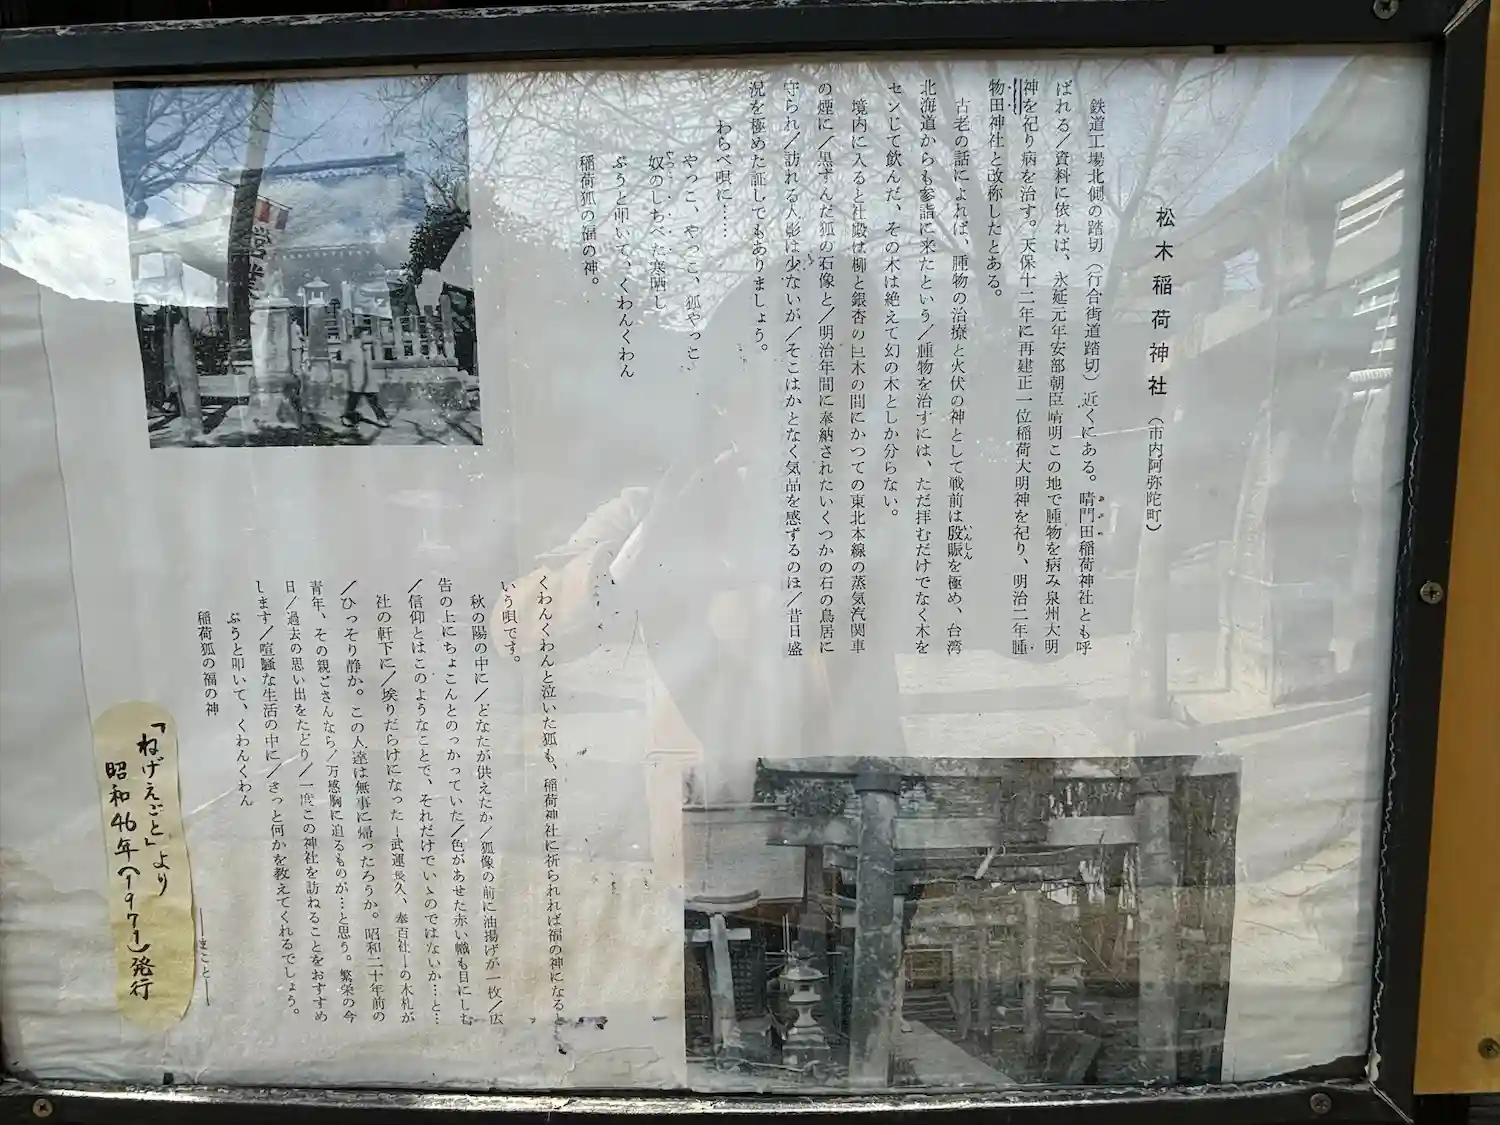 松木稲荷神社（市内阿弥陀町）
鉄道工場北側の踏切（行合街道踏切）近くにある。晴門田稲荷神社とも呼
ばれる／資料に依れば、永延元年安部朝臣晴明この地で腫物を病み泉州大明
神を祀り病を治す。天保十二年に再建正一位稲荷大明神を祀り、明治二年腫
物田神社と改称したとある。
古老の話によれば、腫物の治療と火伏の神として戦前は殷賑を極め、台湾
いんしん
北海道からも参詣に来たという／腫物を治すには、ただ拝むだけでなく木を
センじて飲んだ、その木は絶えて幻の木としか分らない。
境内に入ると社殿は柳と銀杏の巨木の間にかつての東北本線の蒸気汽関車
の煙に／黒ずんだ狐の石像と／明治年間に奉納されたいくつかの石の鳥居に
守られ／訪れる人影は少ないが／そこはかとなく気品を感ずるのほ／昔日盛
況を極めた証しでもありましょう。
わらべ唄に……
やっこ、やっこ、狐やっこ
奴のしちべた寒晒し
ぶうと叩いて、くわんくわん
稲荷狐の福の神。
くわんくわんと泣いた狐も、稲荷神社に祈られれば福の神になると
いう唄です。
秋の陽の中に／どなたが供えたか／狐像の前に油揚げが一枚／広
告の上にちょこんとのっかっていた／色があせた赤い幟も目にしむ
／信仰とはこのようなことで、それだけでいゝのではないか…と…
社の軒下に／埃りだらけになった－武運長久、奉百社－の木札が
／ひっそり静か。この人達は無事に帰ったろうか。昭和二十年前の
青年、その親ごさんなら／万感胸に迫るものが…と思う。繁栄の今
日／過去の思い出をたどり／一度この神社を訪ねることをおすすめ
します／喧騒な生活の中に／きっと何かを教えてくれるでしょう。
ぶうと叩いて、くわんくわん
稲荷狐の福の神
――まこと――
「ねげえごと」より
昭和46年（1971）発行